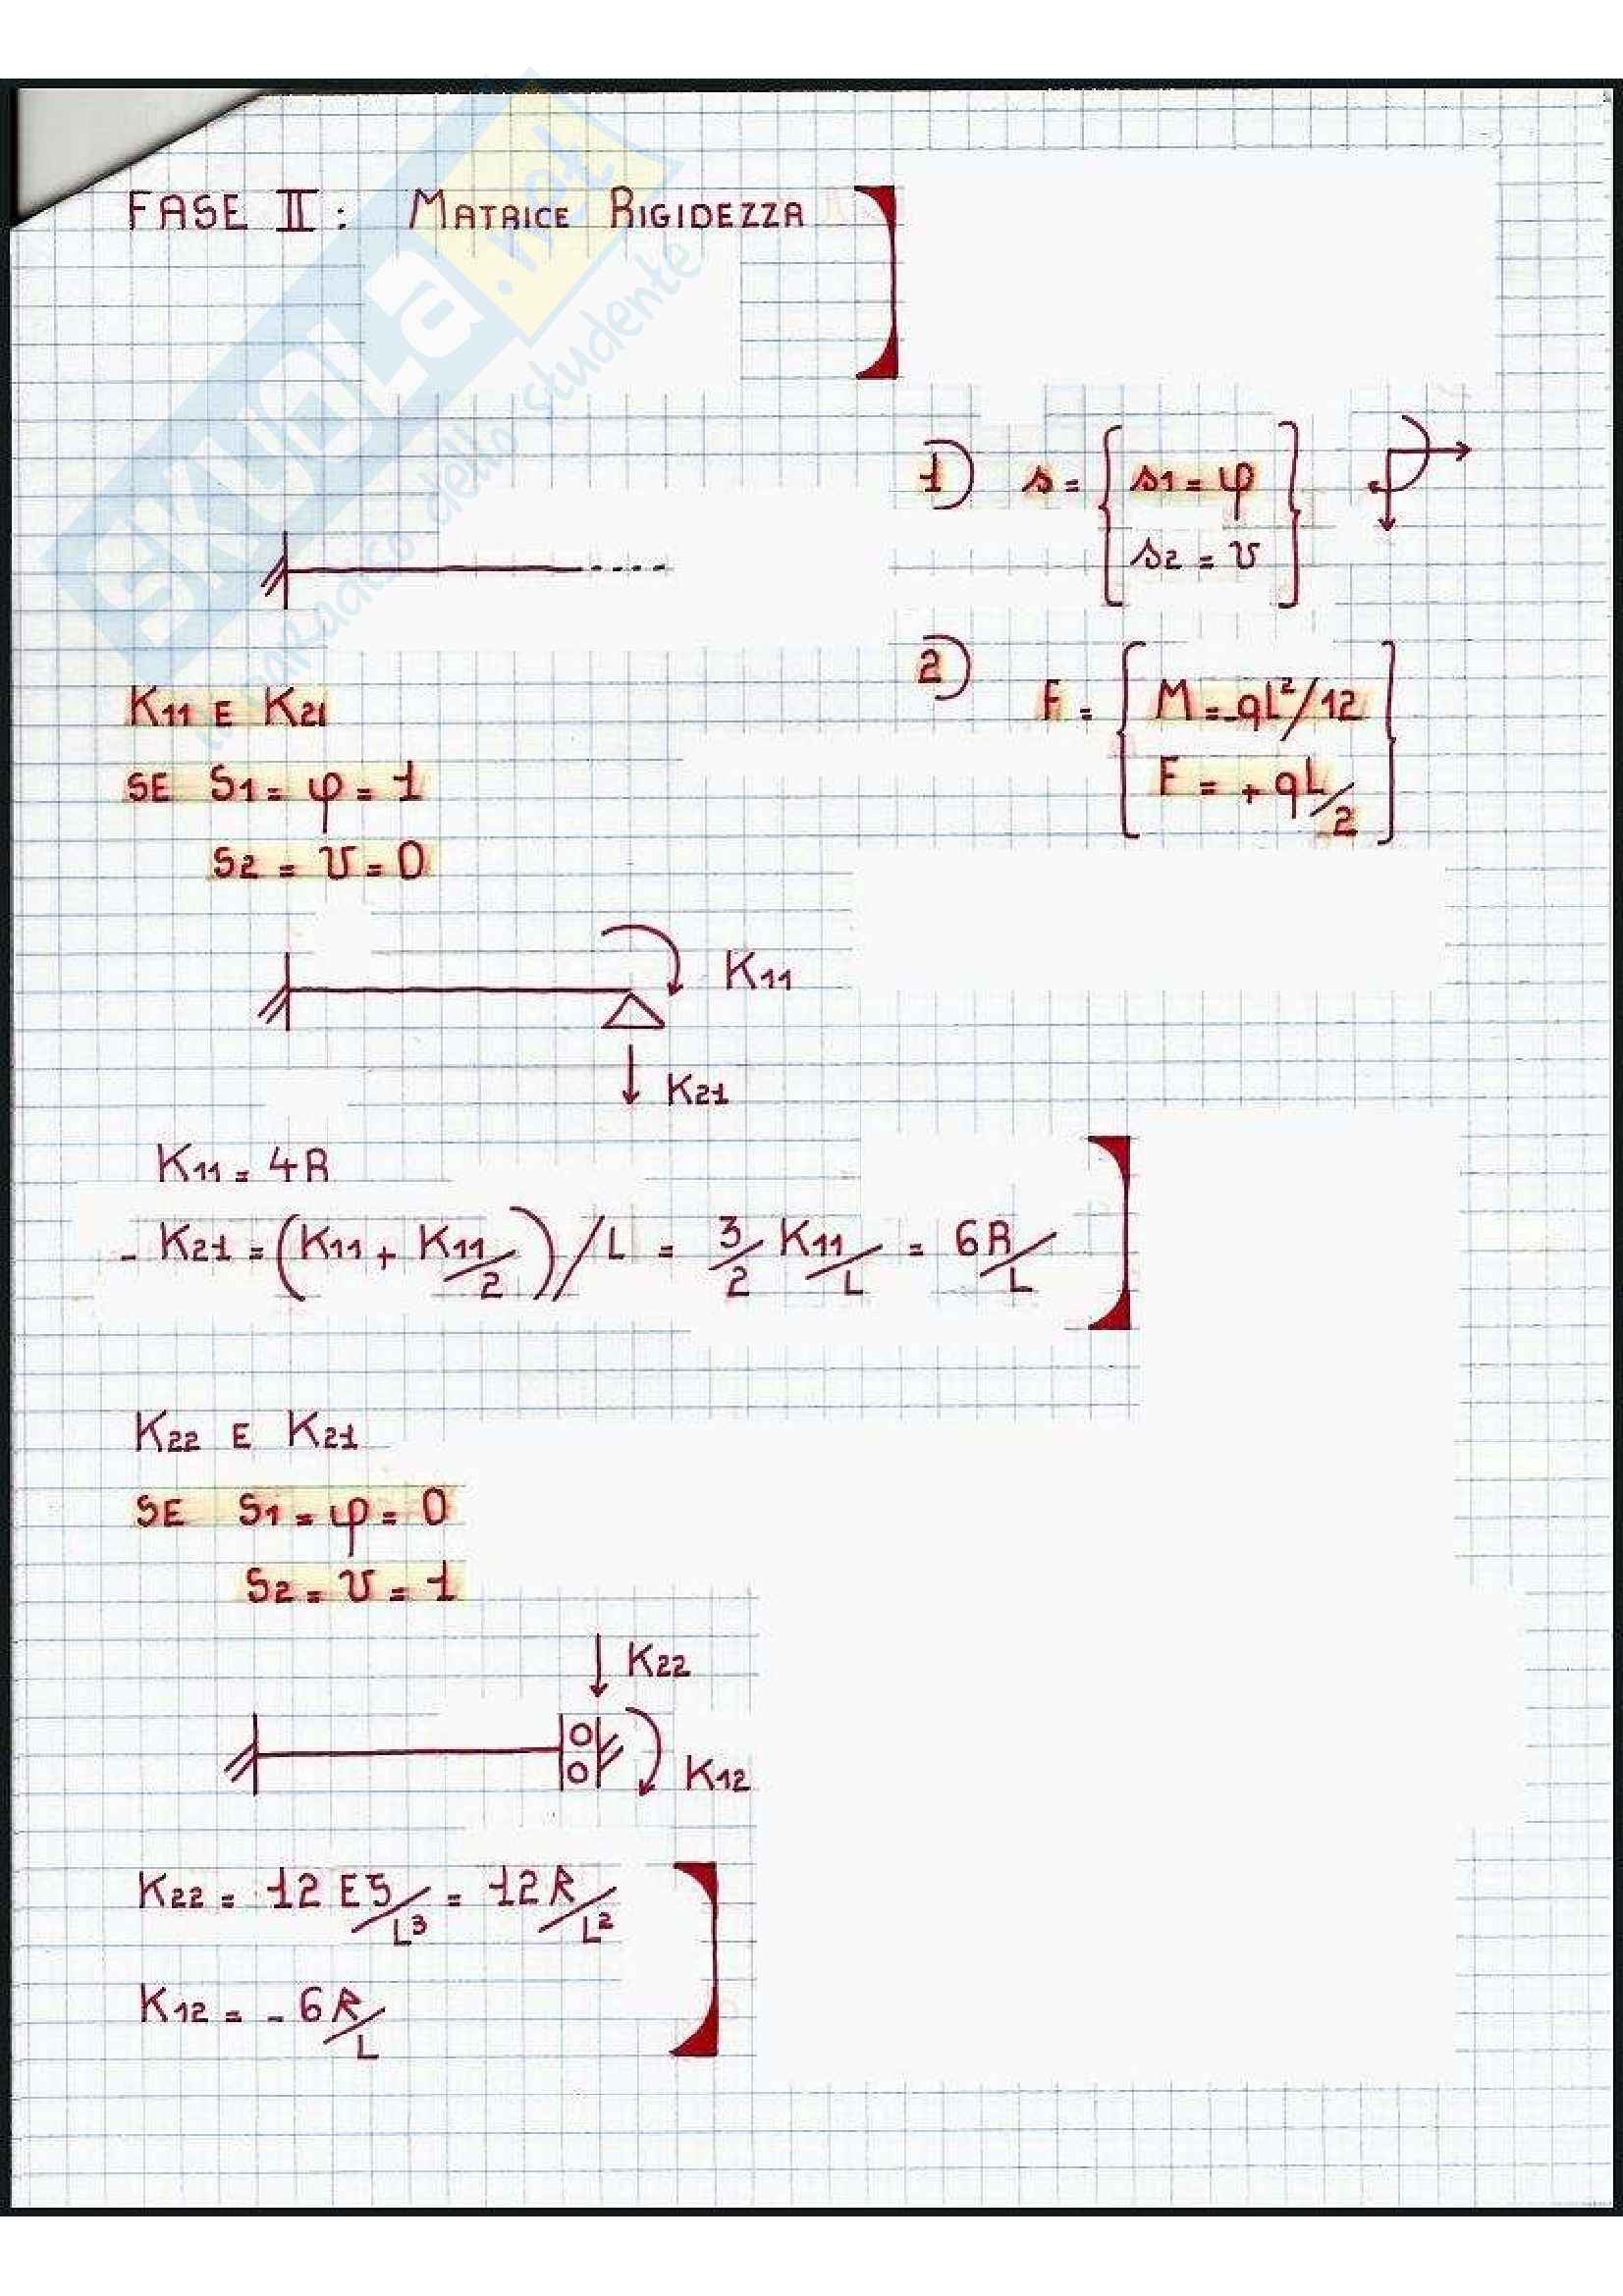 FASE II: MATRICE RIGIDEZZA
SKUOLA.net
il paradiso dello studente
1) s = { s1 = φ
s2 = v }
2) F = { M = -qL²/12
F = +qL/2 }
K11 E K21
SE S1 = φ = 1
S2 = v = 0
K11
K21
K11 = 4R
- K21 = (K11 + K11/2)/L = 3/2 K11/L = 6R/L
K22 E K21
SE S1 = φ = 0
S2 = v = 1
K22
K12
K22 = 12 EJ/L³ = 12R/L²
K12 = -6R/L